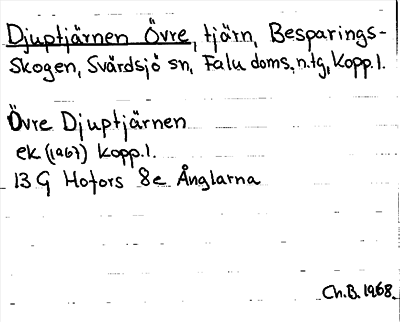 Djuptjärnen Övre, tjärn, Besparings-
Skogen, Svärdsjö sn, Falu doms. n. tg, Kopp. l.
Övre Djuptjärnen
ek (1967) Kopp. l.
13 G Hofors 8e Änglarna
Ch. B. 1968.